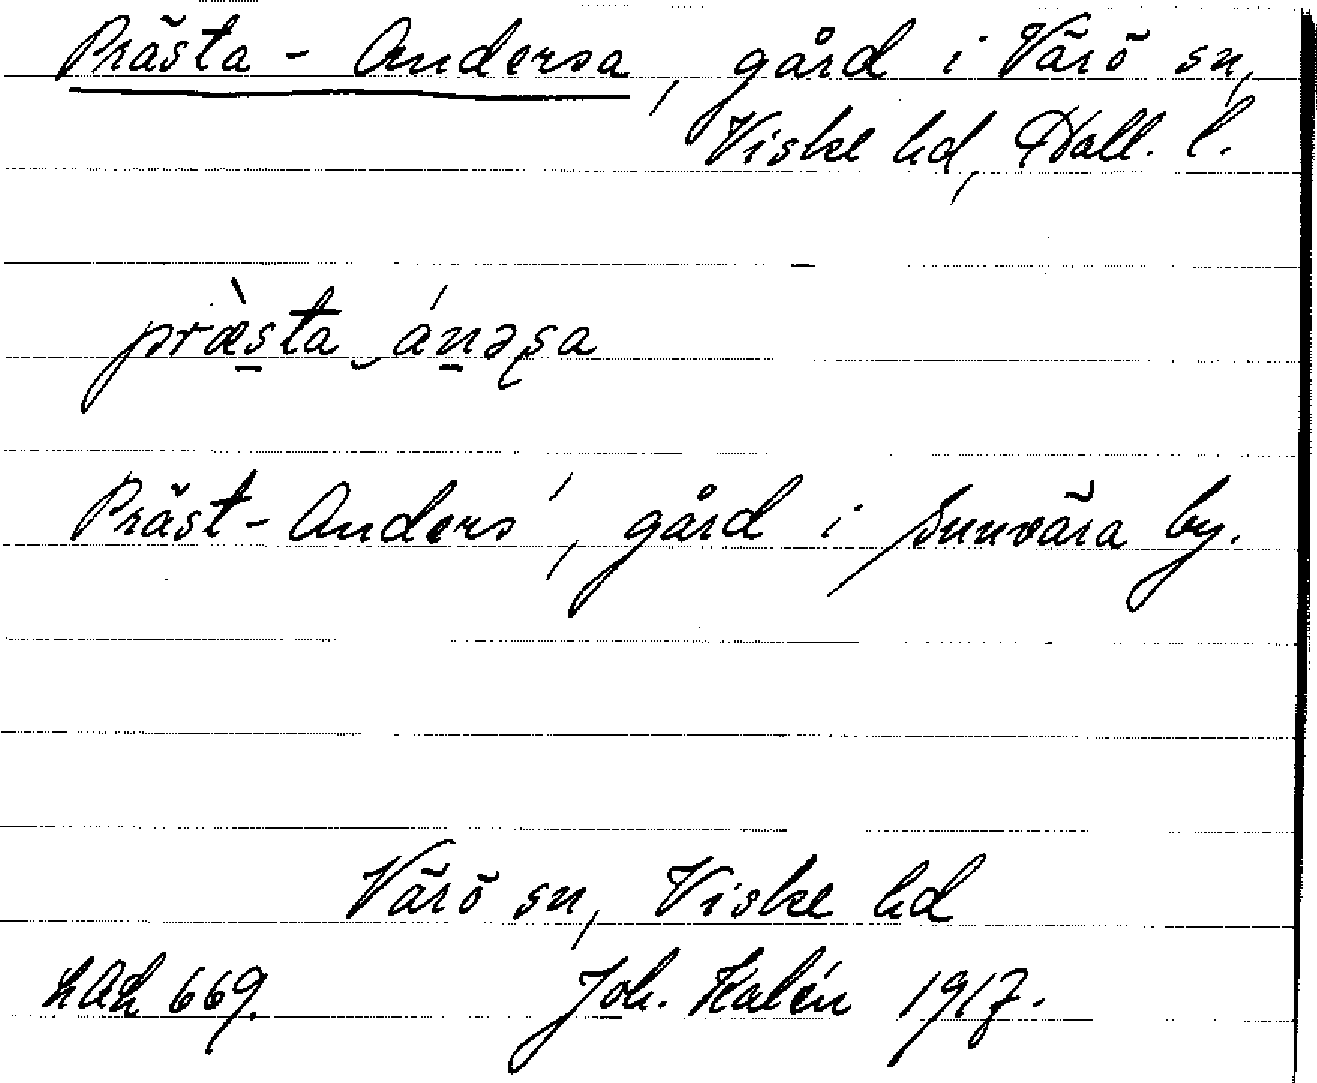 Prästa-Andersa, gård i Värö sn,
Viske hd, Hall. l.
præ̀sta ‿ ánəʂa
Präst-Anders', gård i Sunvära by.
Värö sn, Viske hd
LAL 669. Joh. Kalén 1917.